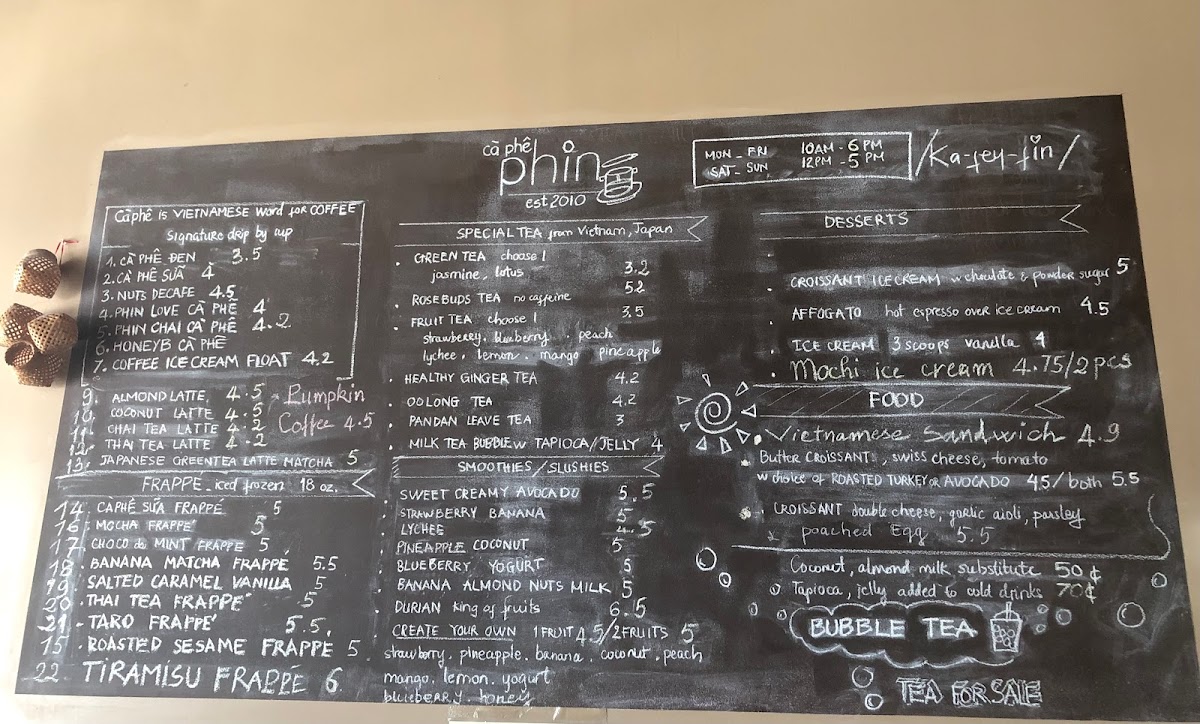 cà phê
phin
est 2010
MON - FRI 10AM - 6 PM
SAT - SUN 12PM - 5 PM
/Ka-fey-fin/
Càphê is VIETNAMESE Word for COFFEE
Signature drip by cup
1. CÀ PHÊ ĐEN 3.5
2. CÀ PHÊ SỮA 4
3. NUTS DECAFE 4.5
4. PHIN LOVE CÀ PHÊ 4
5. PHIN CHAI CÀ PHÊ 4.2
6. HONEYB CÀ PHÊ
7. COFFEE ICE CREAM FLOAT 4.2
9. ALMOND LATTE 4.5
10. COCONUT LATTE 4.5
11. CHAI TEA LATTE 4.2
12. THAI TEA LATTE 4.2
13. JAPANESE GREENTEA LATTE MATCHA 5
Pumpkin
Coffee 4.5
FRAPPE - iced frozen 18 oz.
14. CÀPHÊ SỮA FRAPPÉ 5
16. MOCHA FRAPPE' 5
17. CHOCO de MINT FRAPPE 5
18. BANANA MATCHA FRAPPÉ 5.5
19. SALTED CARAMEL VANILLA 5
20. THAI TEA FRAPPE' 5
21. TARO FRAPPE' 5.5
15. ROASTED SESAME FRAPPÉ 5
22 TIRAMISU FRAPPÉ 6
SPECIAL TEA from Vietnam, Japan
GREEN TEA choose 1
jasmine, lotus 3.2
ROSEBUDS TEA no caffeine 5.2
FRUIT TEA choose 1 3.5
strawberry, blueberry, peach
lychee, lemon, mango pineapple
HEALTHY GINGER TEA 4.2
OOLONG TEA 4.2
PANDAN LEAVE TEA 3
MILK TEA BUBBLE w TAPIOCA/JELLY 4
SMOOTHIES/SLUSHIES
SWEET CREAMY AVOCADO 5.5
STRAWBERRY BANANA 5
LYCHEE 4.5
PINEAPPLE COCONUT 5
BLUEBERRY YOGURT 5
BANANA ALMOND NUTS MILK 5
DURIAN king of fruits 6.5
CREATE YOUR OWN 1 FRUIT 4.5/2 FRUITS 5
strawberry. pineapple. banana. coconut. peach
mango. lemon. yogurt
blueberry. honey
DESSERTS
CROISSANT ICE CREAM w chocolate & powder sugar 5
AFFOGATO hot espresso over ice cream 4.5
ICE CREAM 3 scoops vanilla 4
Mochi ice cream 4.75/2pcs
FOOD
Vietnamese Sandwich 4.9
Butter CROISSANT, swiss cheese, tomato
w choice of ROASTED TURKEY OR AVOCADO 4.5/both 5.5
CROISSANT double cheese, garlic aioli, parsley
poached Egg 5.5
Coconut, almond milk substitute 50¢
Tapioca, jelly added to cold drinks 70¢
BUBBLE TEA
TEA FOR SALE